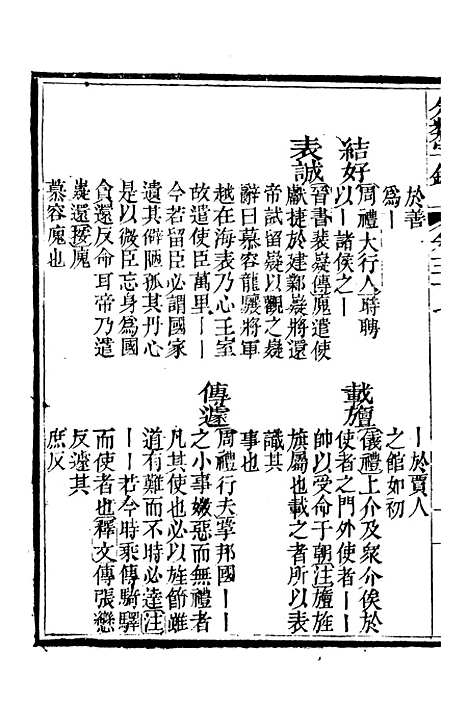 於善
為丨
結好
周禮大行人時聘
以丨諸侯之丨
表誠
晉書裴嶷傳廆遣使
獻捷於建鄴嶷將還
帝試留嶷以觀之嶷
辭曰慕容龍驤將軍
越在海表乃心王室
故遣使臣萬里丨丨
今若留臣必謂國家
遺其僻陋孤其丹心
是以微臣忘身為國
貪還反命耳帝乃遣
嶷還接廆
慕容廆也
丨於賈人
之館如初
載旜
儀禮上介及衆介俟於
使者之門外使者丨丨
帥以受命于朝注旜旌
旗屬也載之者所以表
識其
事也
傳遽
周禮行夫掌邦國丨丨
之小事媺惡而無禮者
凡其使也必以旌節雖
道有難而不時必達注
丨丨若今時乘傳騎驛
而使者也釋文傳張戀
反遽其
庶反